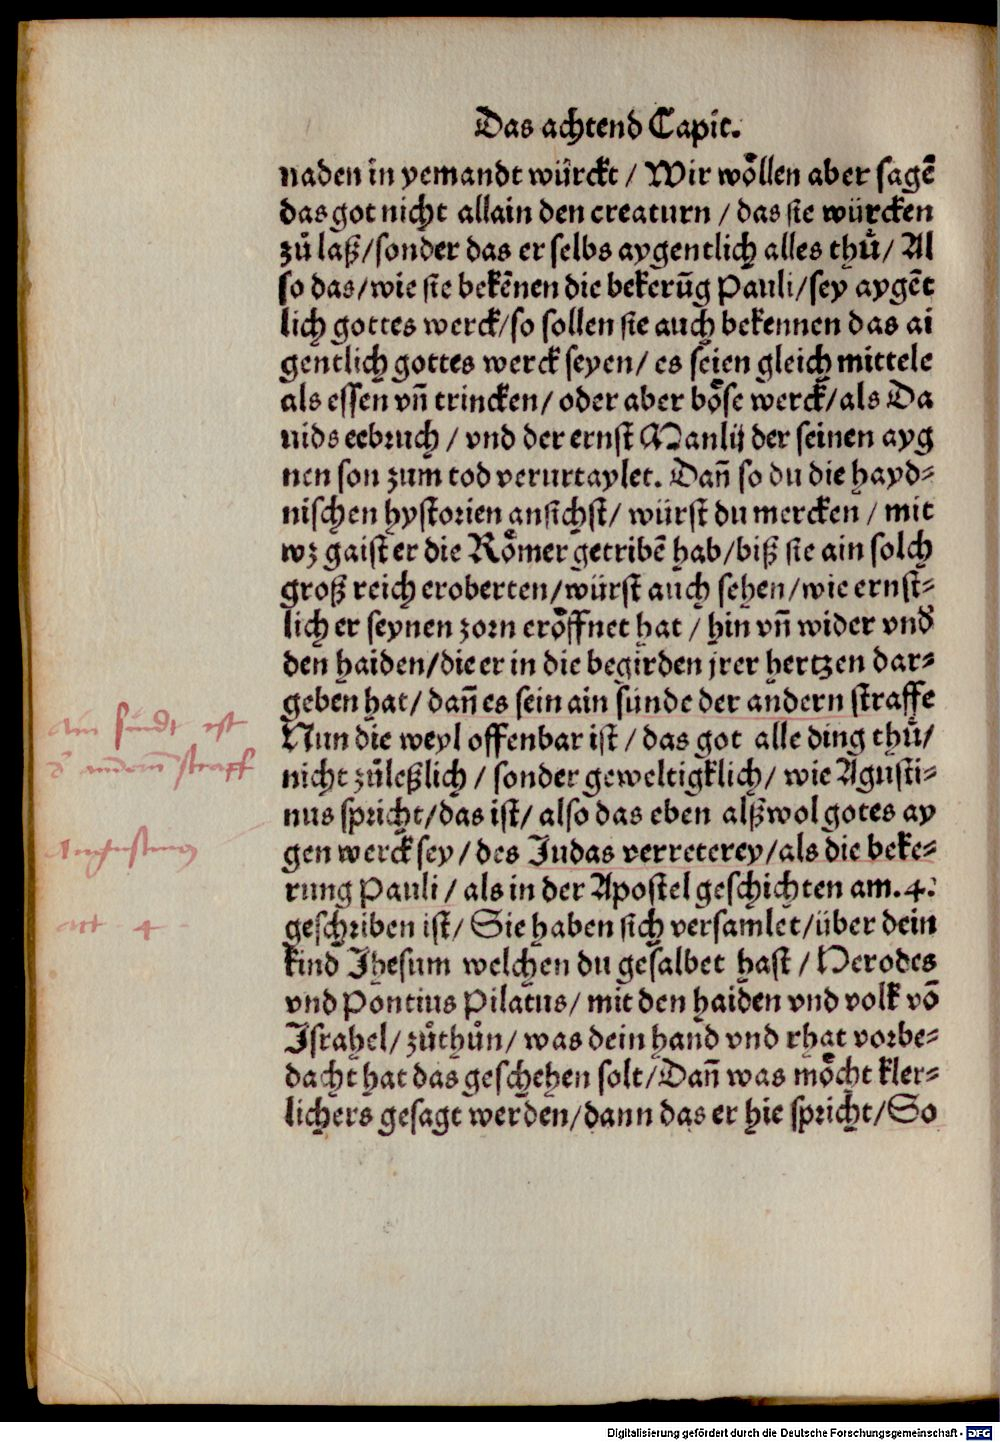 Das achtend Capit.
naden in yemandt würckt / Wir wöllen aber sagē
das got nicht allain den creaturn / das sie würcken
zů laß/sonder das er selbs aygentlich alles thů/ Al
so das/wie sie bekēnen die bekerūg Pauli/sey aygēt
lich gottes werck/so sollen sie auch bekennen das ai
gentlich gottes werck seyen/ es seien gleich mittele
als essen vñ trincken/ oder aber böse werck/als Da
uids eebruch / vnd der ernst Manlij der seinen ayg
nen son zum tod verurtaylet. Dañ so du die hayd⸗
nischen hystorien ansichst/ würst du mercken / mit
wz gaist er die Römer getribē hab/biß sie ain solch
groß reich eroberten/würst auch sehen/wie ernst⸗
lich er seynen zorn eröffnet hat / hin vñ wider vnd̕
den haiden/die er in die begirden jrer hertzen dar⸗
geben hat/ dañ es sein ain sünde der andern straffe
Nun die weyl offenbar ist / das got alle ding thů/
nicht zůleßlich / sonder geweltigklich/ wie Agusti⸗
nus spricht/das ist/ also das eben alßwol gotes ay
gen werck sey / des Judas verreterey/als die beke⸗
rung Pauli / als in der Apostel geschichten am.4.
geschriben ist/ Sie haben sich versamlet/über dein
kind Jhesum welchen du gesalbet hast / Herodes
vnd Pontius Pilatus/ mit den haiden vnd volk vō
Israhel/ zůthůn/ was dein hand vnd rhat vorbe⸗
dacht hat das geschehen solt/Dañ was möcht kler⸗
lichers gesagt werden/dann das er hie spricht/So
Ain sündt ist
d̕ andern̄ straff
Augustinus
act . 4 .
Digitalisierung gefördert durch die Deutsche Forschungsgemeinschaft - DFG